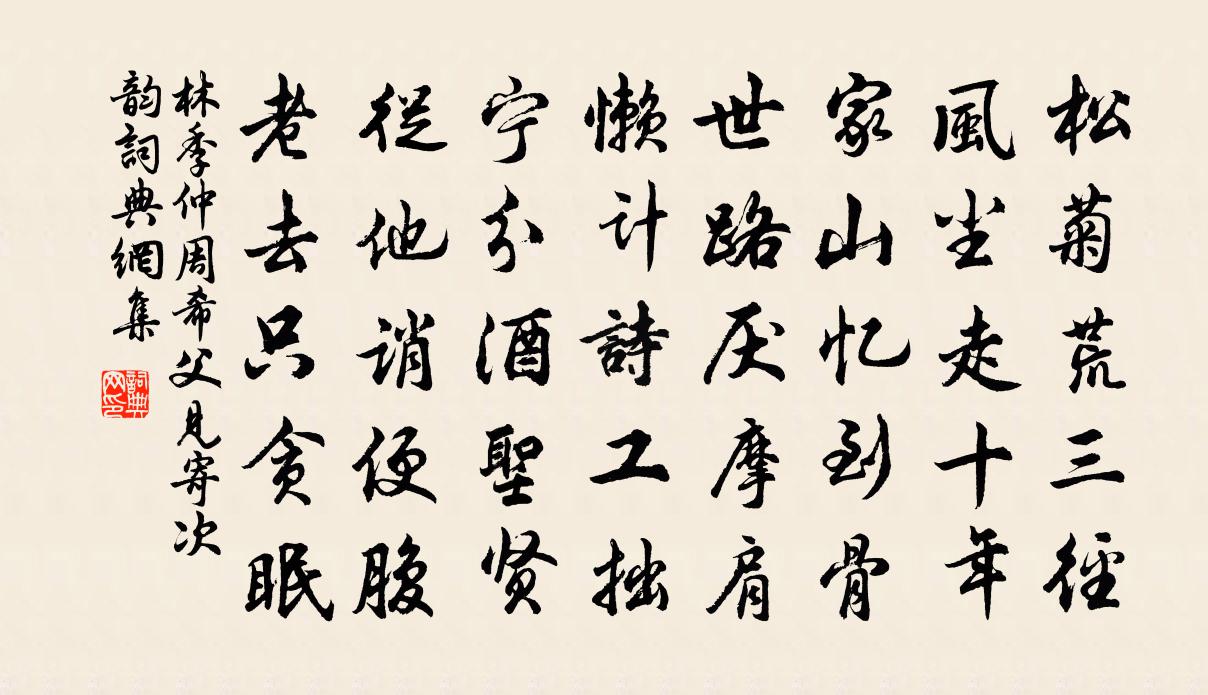 松菊荒三径
風尘走十年
家山忆到骨
世路厌摩肩
懒计詩工拙
宁分酒聖贤
從他誚便腹
老去只贪眠
林季仲周希父見寄次
韵詞典網集
詞典
网印